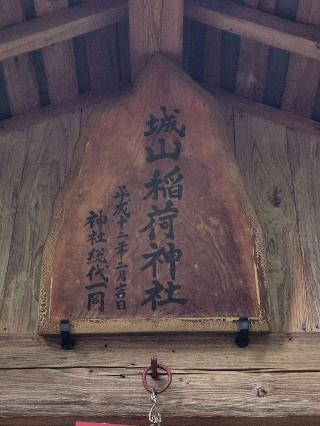 城山稲荷神社
平成十二年二月吉日
神社総代一同